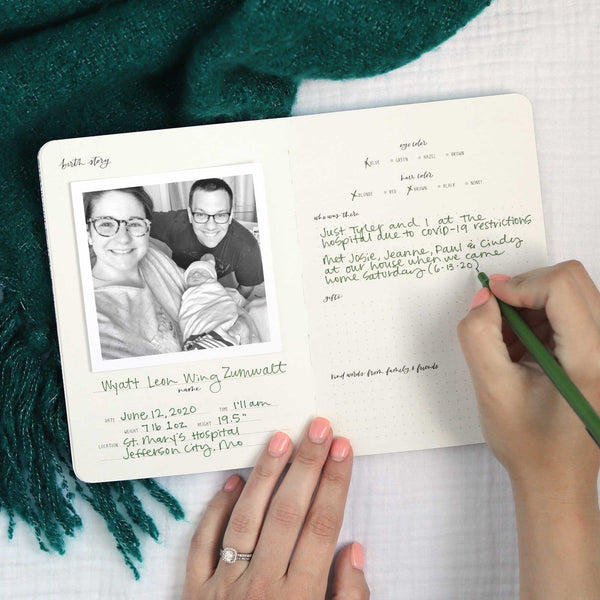 birth story
Wyatt Leon Wing Zumwalt
name
DATE June 12, 2020 TIME 1:11 am
WEIGHT 7 lb 1oz HEIGHT 19.5"
LOCATION St. Mary's Hospital
Jefferson City, Mo
eye color
BLUE GREEN HAZEL BROWN
hair color
BLONDE RED BROWN BLACK NONE!
who was there
Just Tyler and I at the
hospital due to COVID-19 restrictions
Met Josie, Jeanne, Paul & Cindy
at our house when we came
home Saturday (6-13-20)
gifts
kind words from family & friends